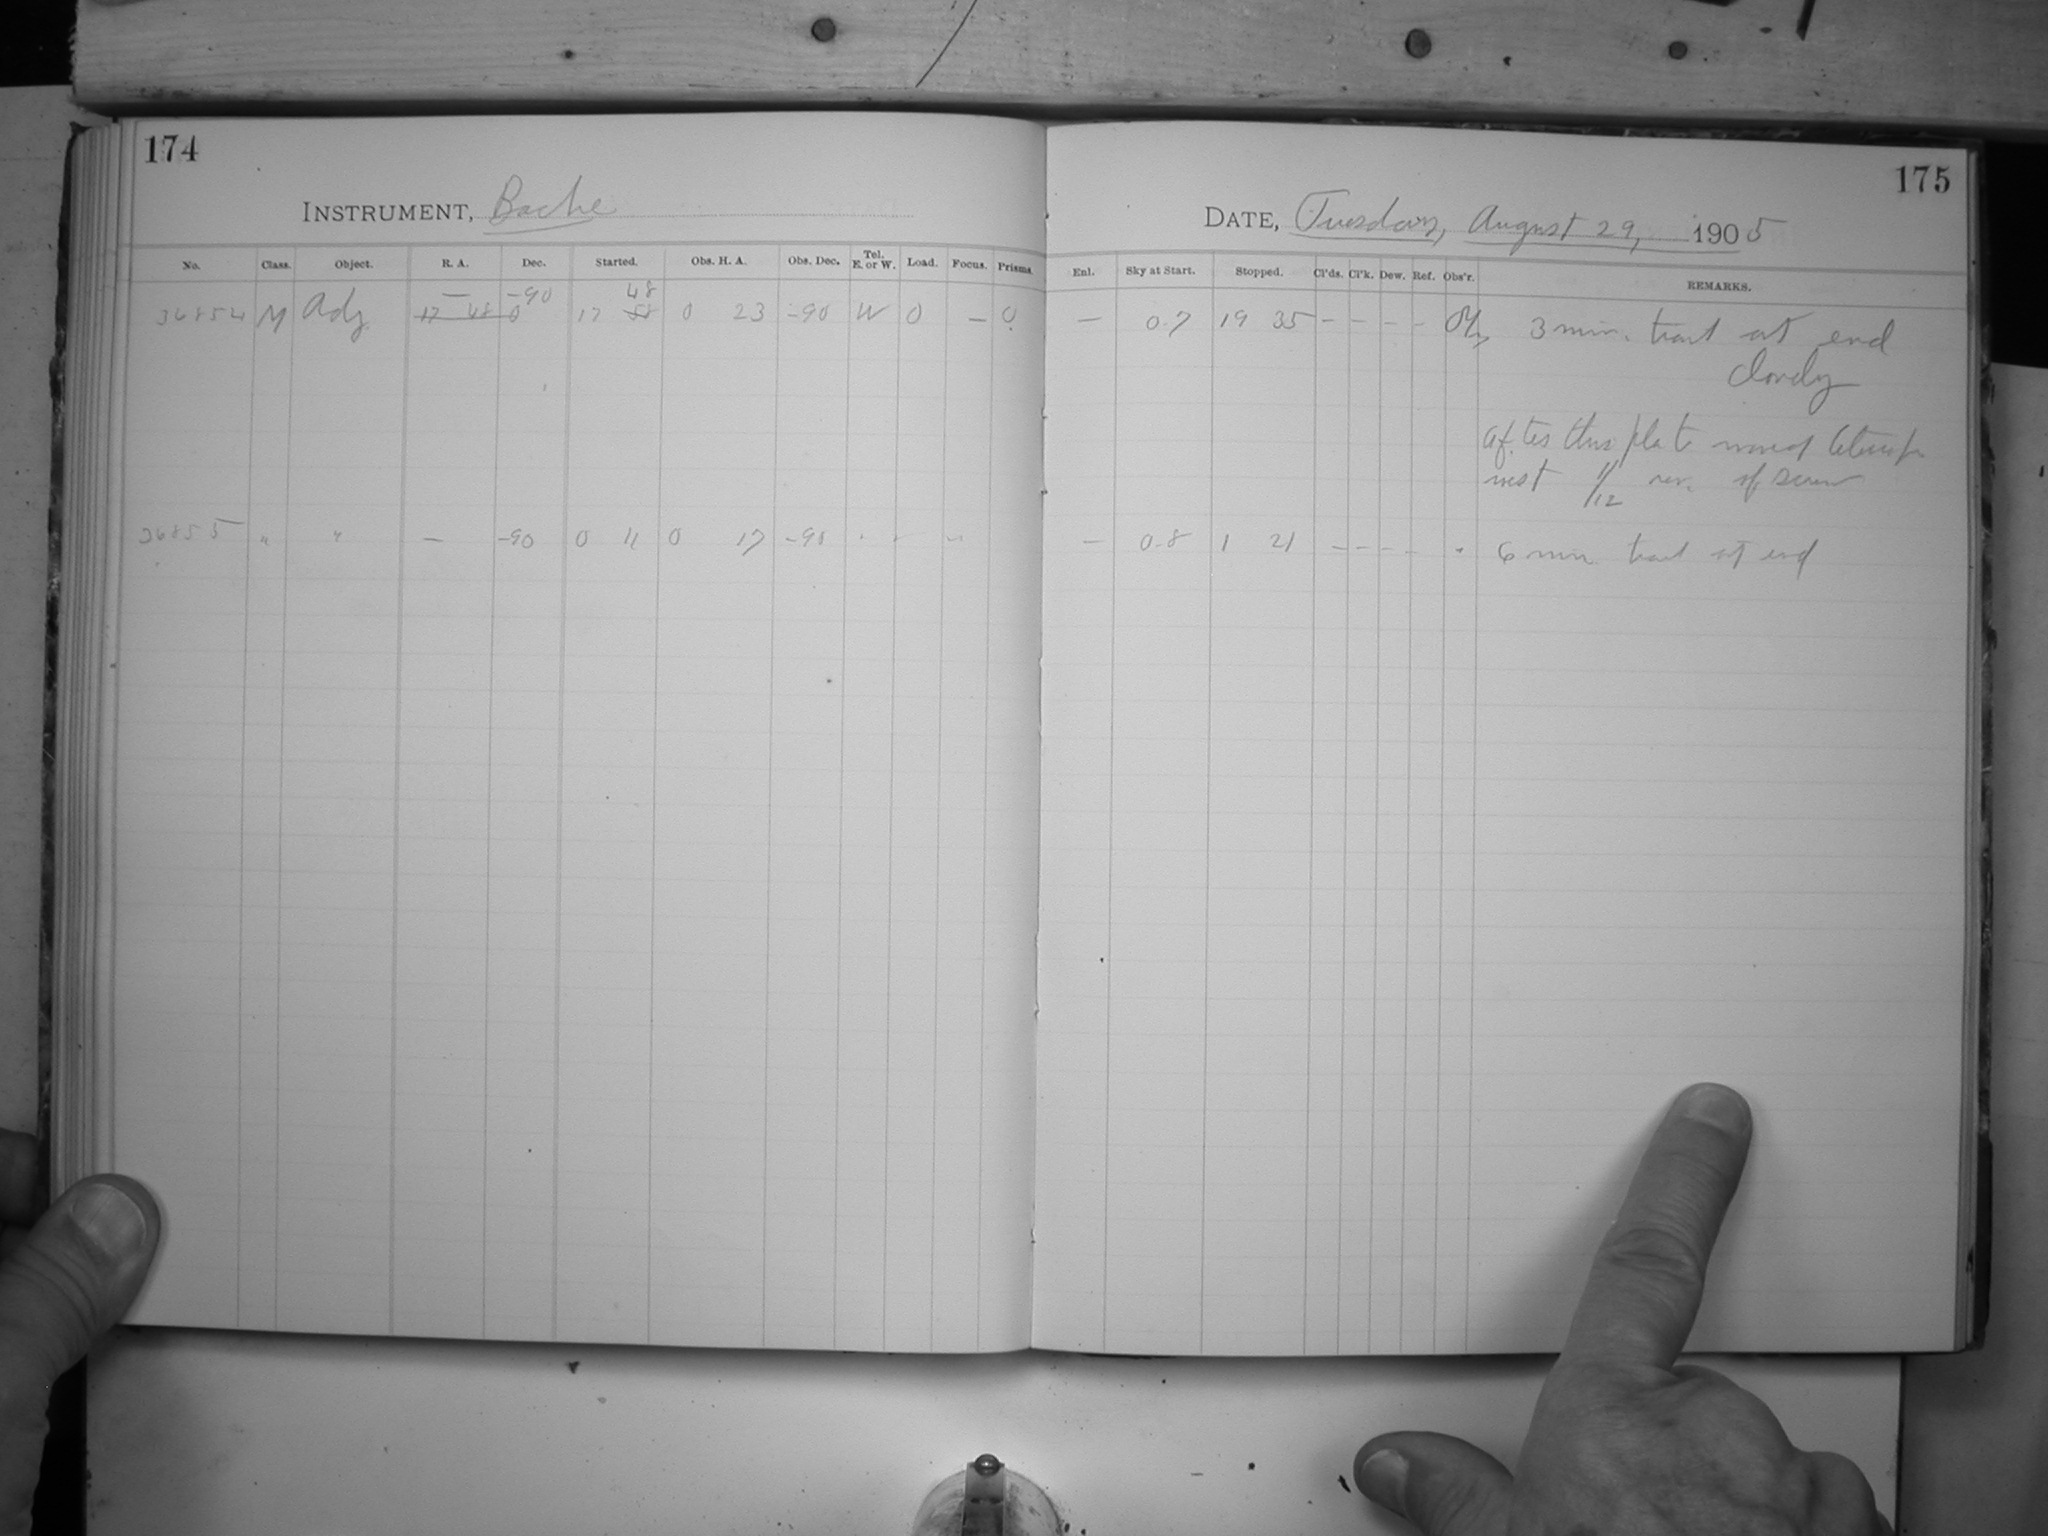 174
175
INSTRUMENT, Bache
DATE, Tuesday, August 29, 1905
No. Class. Object. R. A. Dec. Started. Obs. H. A. Obs. Dec. Tel. E. or W. Load. Focus. Prisms.
Enl. Sky at Start. Stopped. Cl'ds. Cl'k. Dew. Ref. Obs'r. REMARKS.
— -90 48
36854 M Adj. 17 48 0 17 58 0 23 -90 W 0 — 0 — 0.7 19 35 - - - - 3 min. trail at end
cloudy
after this plate moved
west 1/12 rev. of screw
36855 " " — -90 0 11 0 17 -90 — 0.8 1 21 - - - - " 6 min. trail at end